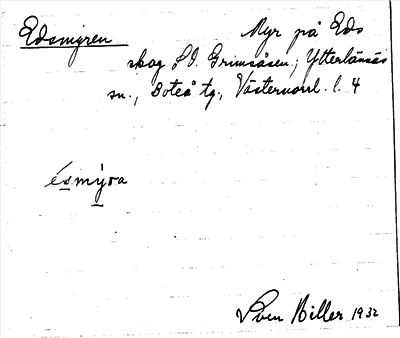 Edsmyren Myr på Eds
skog S.O. Grimsåsen; Ytterlännäs
sn., Boteå tg., Västernorrl. l. 4
ésmýra
Sven Biller 1932